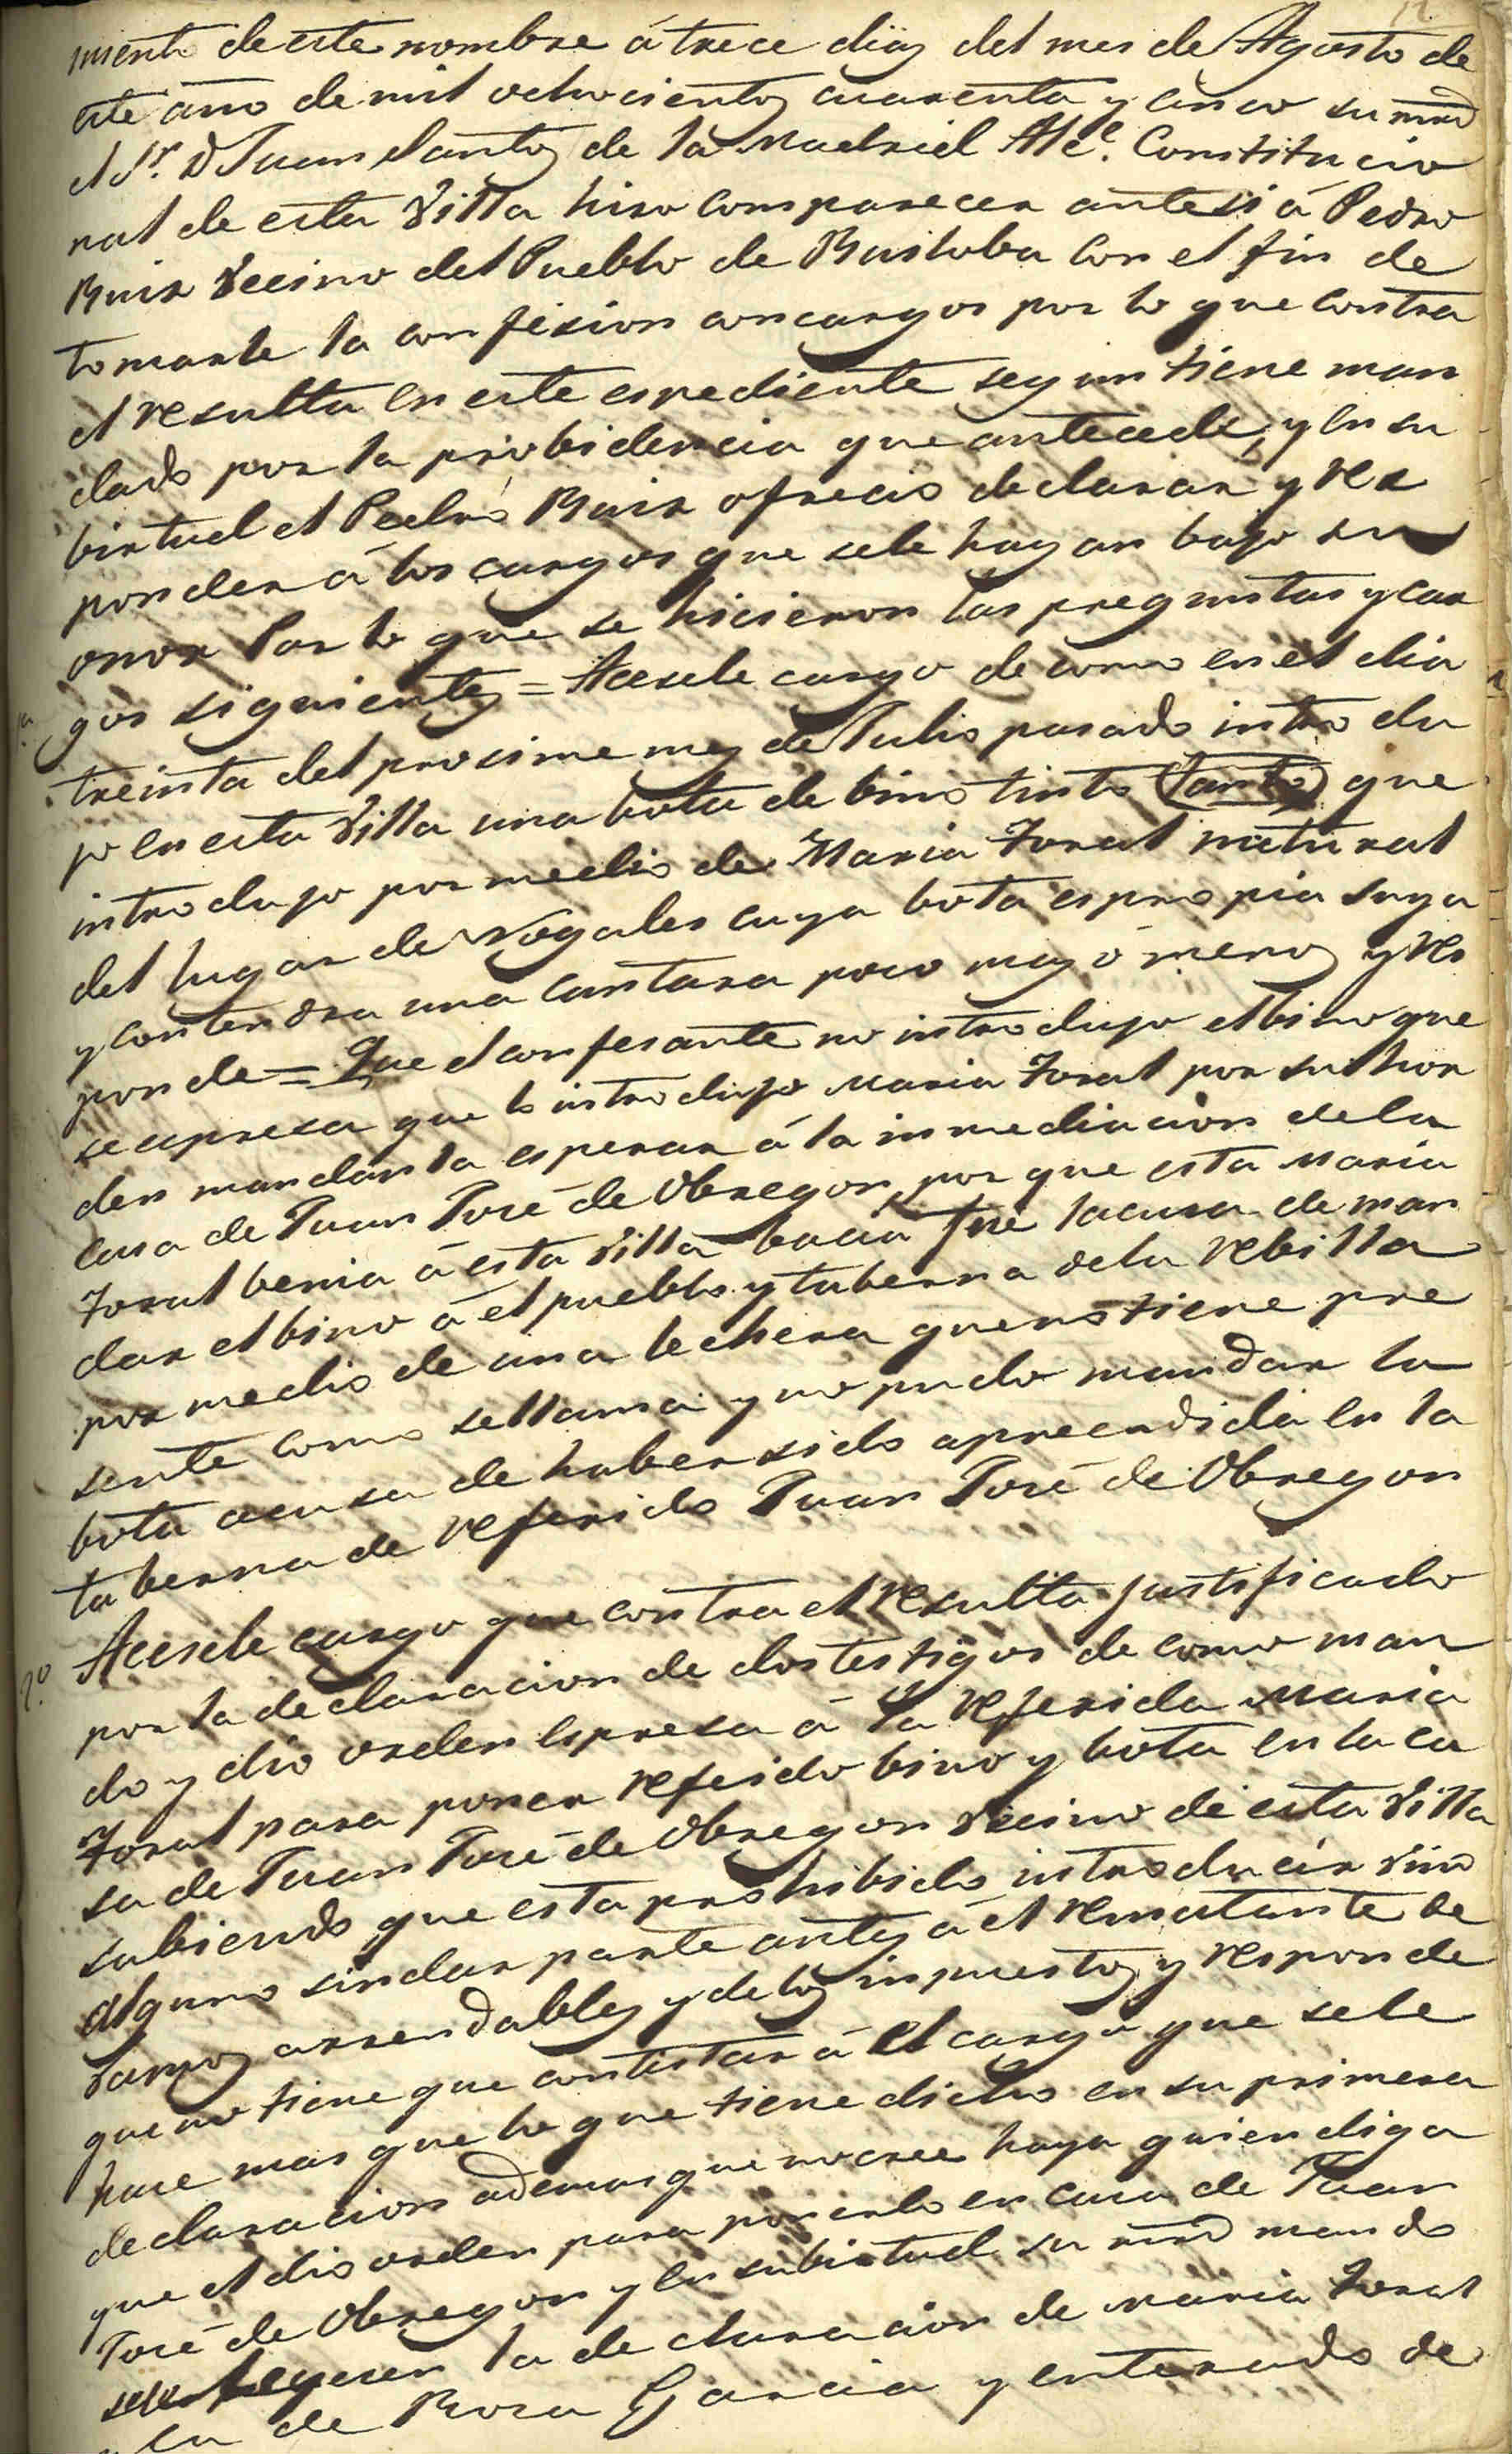 12
miento de este nombre á trece dias del mes de Agosto de
este año de mil ochocientos cuarenta y cinco su mrd
el Sr. D Juan Santos de la Madrid Alc.e Constitucio
nal de esta Villa hiso comparecer ante si á Pedro
Ruis Vecino del Pueblo de Rusloba con el fin de
tomarle la confision con cargos por lo que contra
el resulta en este espediente segun tiene man
dado por la probidencia que antecede, y en su
birtud el Pedro Ruis ofrecio declarar y res
ponder á los cargos que sele hagan bajo su
onor Por lo que se hicieron las preguntas y car
gos siguientes = Acesele cargo de como en el dia
treinta del procsime mes de Julio pasado introdu
jo en esta Villa una bota de bino tinto (tanto) que
introdujo por medio de Maria Toral natural
del lugar de Nogales cuya bota es propia suya
y contendra una cantara poco mas ó menos y res
ponde = Que el confesante no introdujo el bino que
se espresa que lo introdujo Maria Toral por su hor
den mandanla esperar á la inmediacion dela
casa de Juan José de Obregon, por que esta Maria
Toral benia á esta Villa bacia fue la causa de man
dar el bino á el pueblo y taberna dela Rebilla
por medio de una lechera que no tiene pre
sente como se llama y no pudo mandar la
bota acausa de haber sido apreendida en la
taberna de referido Juan José de Obregon
2.o Acesele cargo que contra el resulta justificado
por la declaracion de dos testigos de como man
do y dio orden espresa á la referida Maria
Toral para poner refeido bino y bota en la ca
sa de Juan José de Obregon Vecino de esta Villa
sabiendo que esta prohibido introducir Vino
alguno sin dar parte antes á el rematante de
ramos arrendables y de los inpuestos y responde
que no tiene que contestar á el cargo que sele
hace mas que lo que tiene dicho en su primera
declaracion ademas que no cree haya quien diga
que el dio orden para ponerlo en casa de Juan
José de Obregon y en subirtud su mrd mando
leyesen la declaracion de Maria Toral
y la de Rosa Garcia y enterado de